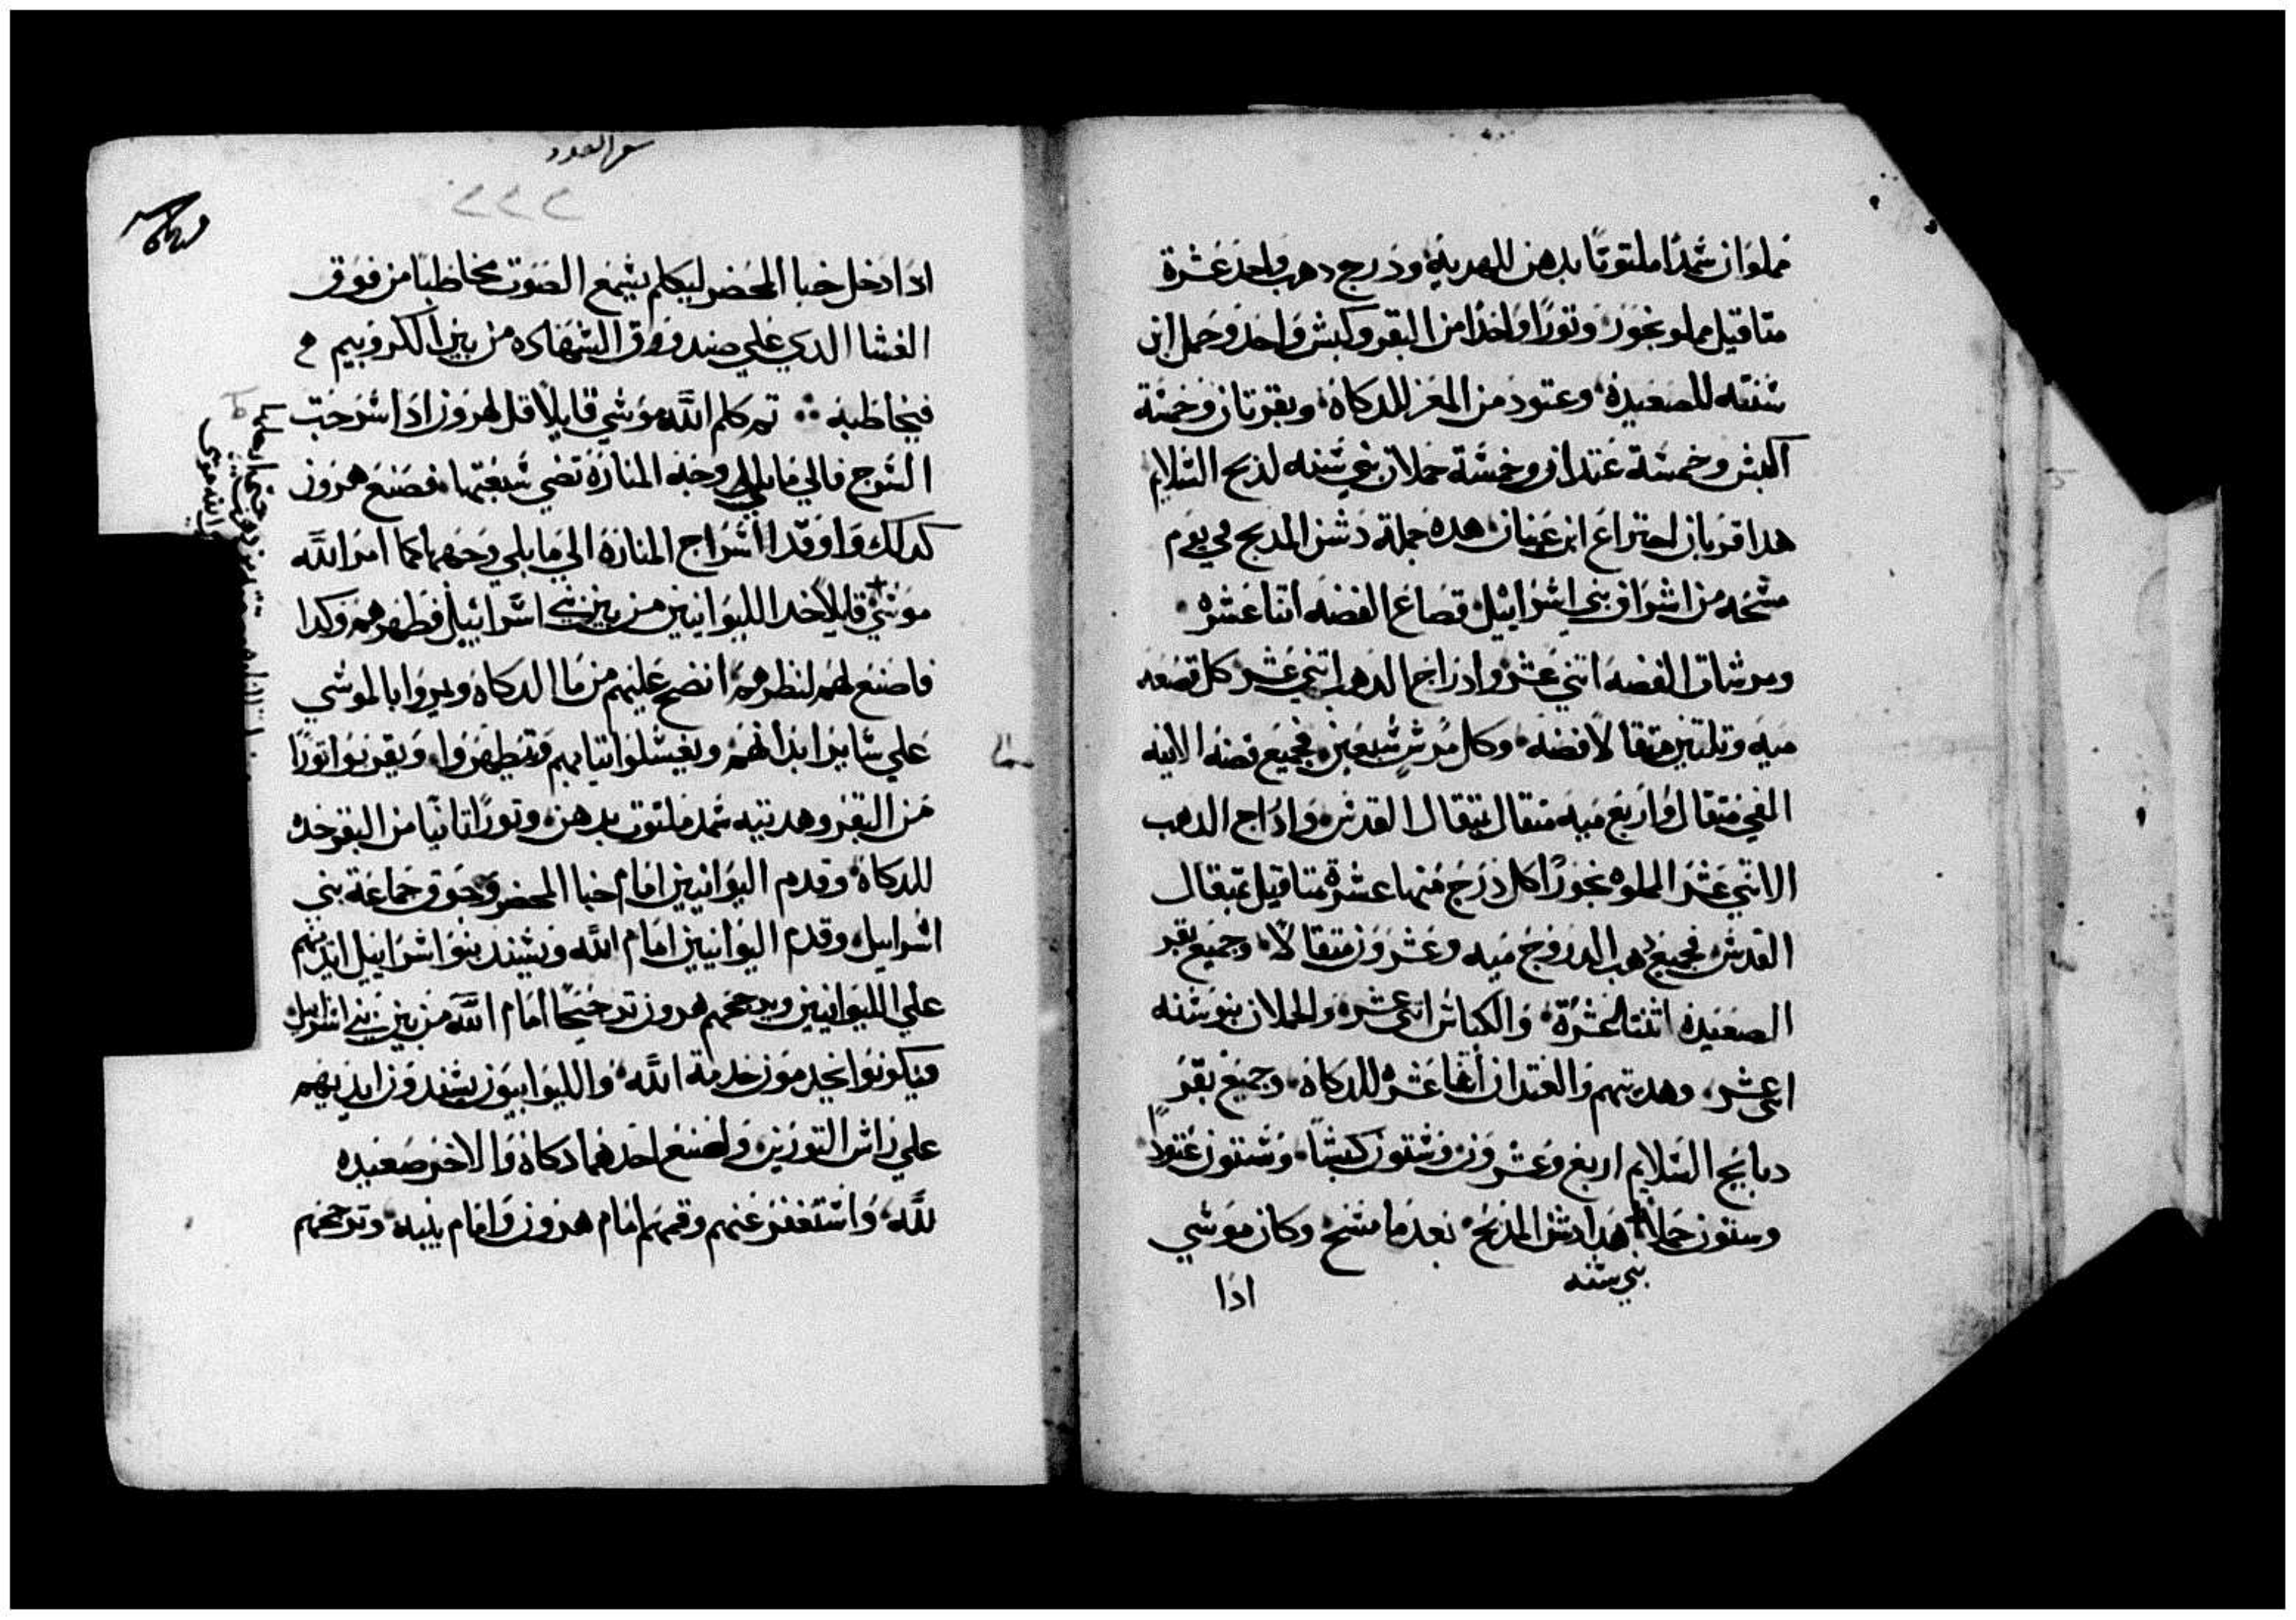 مملوان سمدًا ملتوتًا بدهن للهديه ودرج دهب واحد عشرة
متاقيل مملو بخور وتورًا واحدًا من البقر وكبش واحد وحمل ابن
سنته للصعيده وعتود من المعز للدكاه وبقرتان وخمسة
اكبش وخمسة عتدان وخمسة حملان بني سنه لدبح السلايم
هدا قربان احيراع ابن عينان هده جملة دشن المدبح في يوم
مسحه من اشراف بني اسراييل قصاع الفضه اتنا عشره
ومرشات الفضه اتني عشر وادراج الدهب اتني عشر كل قصعه
ميه وتلتين متقالاً فضه وكل مرش سبعين فجميع فضه الانيه
الفي متقال واربع ميه متقال بمتقال القدس وادراج الدهب
الاتني عشر المملوه بخورًا كل درج منها عشرة متاقيل بمتقال
القدس فجميع دهب الدروج ميه وعشرون متقالاً وجميع بقر
الصعيده اتنتا عشرة والكباش اتني عشره والحملان بنو سنه
اتني عشر وهديتهم والعتدان اتنا عشر للدكاة وجميع بقر
دبايح السلايم اربع وعشرون وستون كبشًا وستون عتود
وستون حملاً هدا دشن المدبح بعد ما مسح وكان موسي
بني سنه
ادا
سفر العدد
٢٢٢
ادا دخل خبا المحضر ليكلم يسمع الصوت مخاطبًا من فوق
الغشا الدي علي صندوق الشهاده من بين الكروبيم
فيخاطبه ؞ تم كلم الله موسي قايلاً قل لهرون ادا اسرجت
السرج فالي ما يلي وجه المناره تضي سبعتها فصنع هرون
كدلك واوقد اسراج المناره الي ما يلي وجهها كما امر الله
موسي قايلاً خد الليوانيين من بين بني اسراييل فطهرهم وكدا
فاصنع لهم لتطهرهم انضح عليهم من ما الدكاة ويمروا بالموسي
علي ساير ابدانهم ويغسلوا تيابهم ويتطهروا ويقربوا تورًا
من البقر وهديته سمد ملتوت بدهن وتورًا تانيًا من البقر خده
للدكاة وقدم اليوانيين امام خبا المحضر وجوق جماعة بني
اسراييل وقدم اليوانيين امام الله ويسند بنو اسراييل ايديهم
علي الليوانيين ويرجحهم هرون ترجيحًا امام الله من بين بني اسراييل
فيكونوا يخدمون خدمة الله والليوانيون يسندون ايديهم
علي راس التورين واصنع احدهما دكاة والاخر صعيده
لله واستغفر عنهم وقمهم امام هرون وامام بنيه وترجحهم